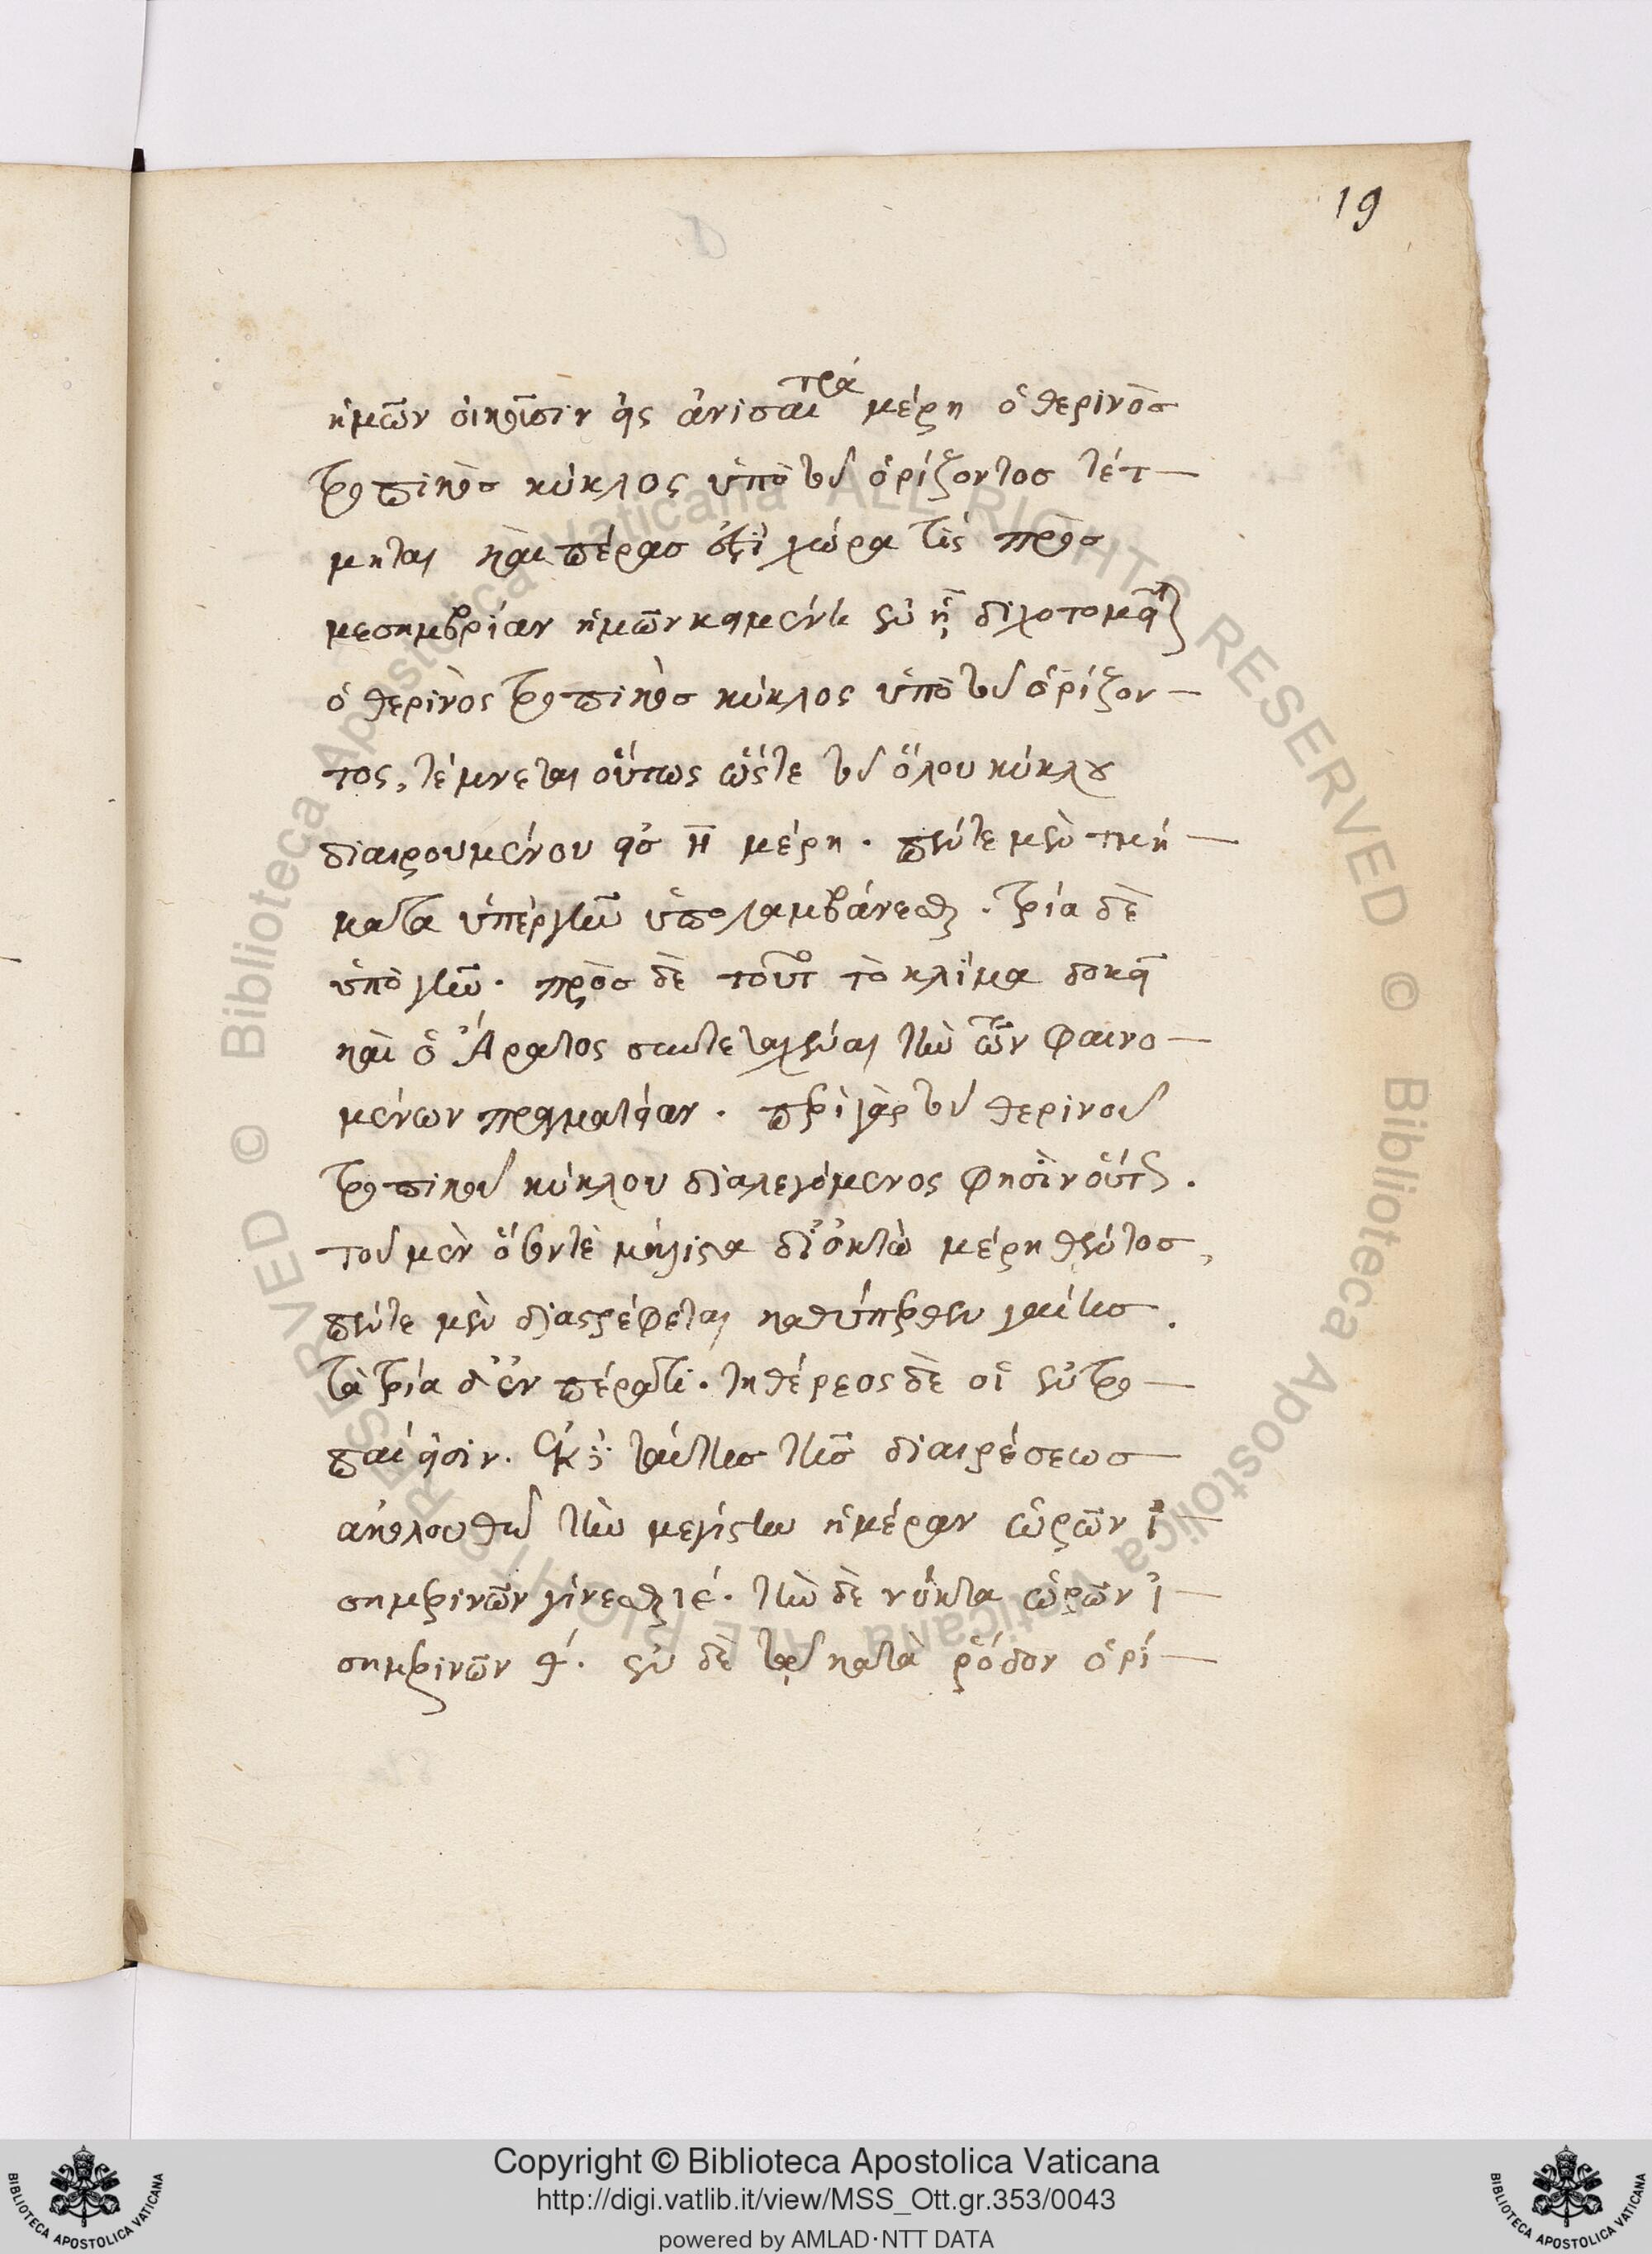 19
ἡμῶν οἴκησιν εἰς ἄνισα
τρία μέρη ὁ θερινὸς
τροπικὸς κύκλος ὑπὸ τοῦ ὁρίζοντος τέτ-
μηται καὶ πέρας ἐστὶ χώρα τὶς πρὸς
μεσημβρίαν ἡμῶν κειμένη ἐν ᾗ διχοτομεῖται
ὁ θερινὸς τροπικὸς κύκλος ὑπὸ τοῦ ὁρίζον-
τος, τέμνεται οὕτως ὥστε τοῦ ὅλου κύκλου
διαιρουμένου εἰς η μέρη. πέντε μὲν τμή-
ματα ὑπὲργῆν ὑπολαμβάνεσθαι. τρία δὲ
ὑπὸ γῆν. πρὸς δὲ τοῦτο τὸ κλῖμα δοκεῖ
καὶ ὁ Ἄρατος συντεταχέναι τὴν τῶν φαινο-
μένων πραγματείαν. περὶ γὰρ τοῦ θερινοῦ
τροπικοῦ κύκλου διαλεγόμενος φησὶν οὕτως.
τοῦ μὲν ὅσον τὲ μάλιστα δι' ὀκτὼ μέρη θέντος,
πέντε μὲν διαστρέφεται καθύπερθεν γαίης.
τὰ τρία δ' ἐν περάτι. τῇ θέρεος δὲ οἱ ἐν τρο-
παί εἰσιν. ἐκ δὲ ταύτης τῆς διαιρέσεως
ἀκολουθεῖ τὴν μεγίστην ἡμέραν ὡρῶν ἰ-
σημερινῶν γίνεσθαι ιε. τὴν δὲ νύκτα ὡρῶν ἰ-
σημερινῶν θ. ἐν δὲ τῷ κατὰ ῥόδον ὁρί-
Copyright © Biblioteca Apostolica Vaticana
http://digi.vatlib.it/view/MSS_Ott.gr.353/0043
powered by AMLAD·NTT DATA
BIBLIOTECA APOSTOLICA VATICANA
BIBLIOTECA APOSTOLICA VATICANA
© Biblioteca Apostolica Vaticana ALL RIGHTS RESERVED © Biblioteca Apostolica Vaticana ALL RIGHTS RESERVED